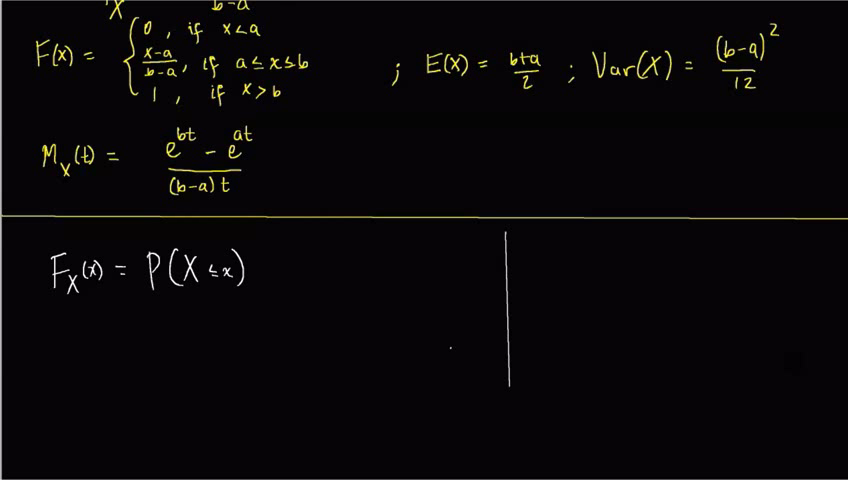 X b-a
F(x) = { 0, if x<a
x-a/b-a, if a≤x≤b
1, if x>b
; E(X) = b+a/2 ; Var(X) = (b-a)²/12
M_X(t) = e^bt - e^at/(b-a)t
F_X(x) = P(X ≤ x)